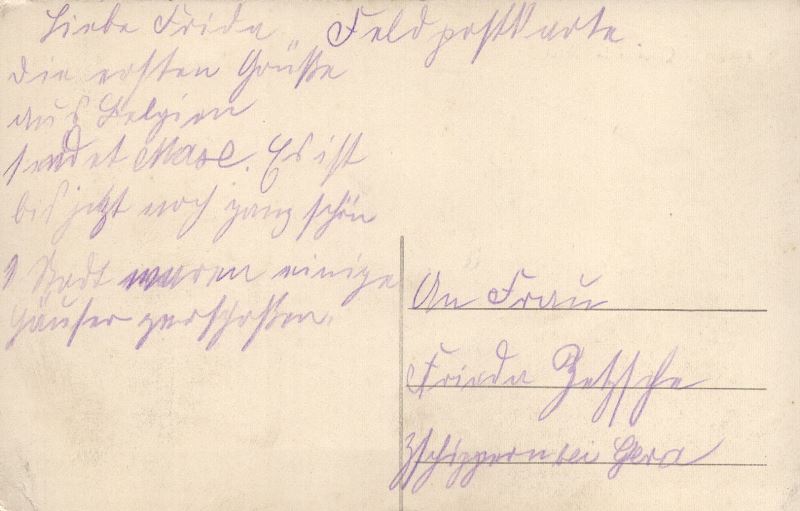 Feldpostkarte.
Liebe Frida
die ersten Grüße
aus Belgien
sendet Max. Es ist
bis jetzt noch ganz schön
1 Stadt waren einige
Häuser zerschoßen.
An Frau
Frieda Zetzsche
Zschippern bei Gera